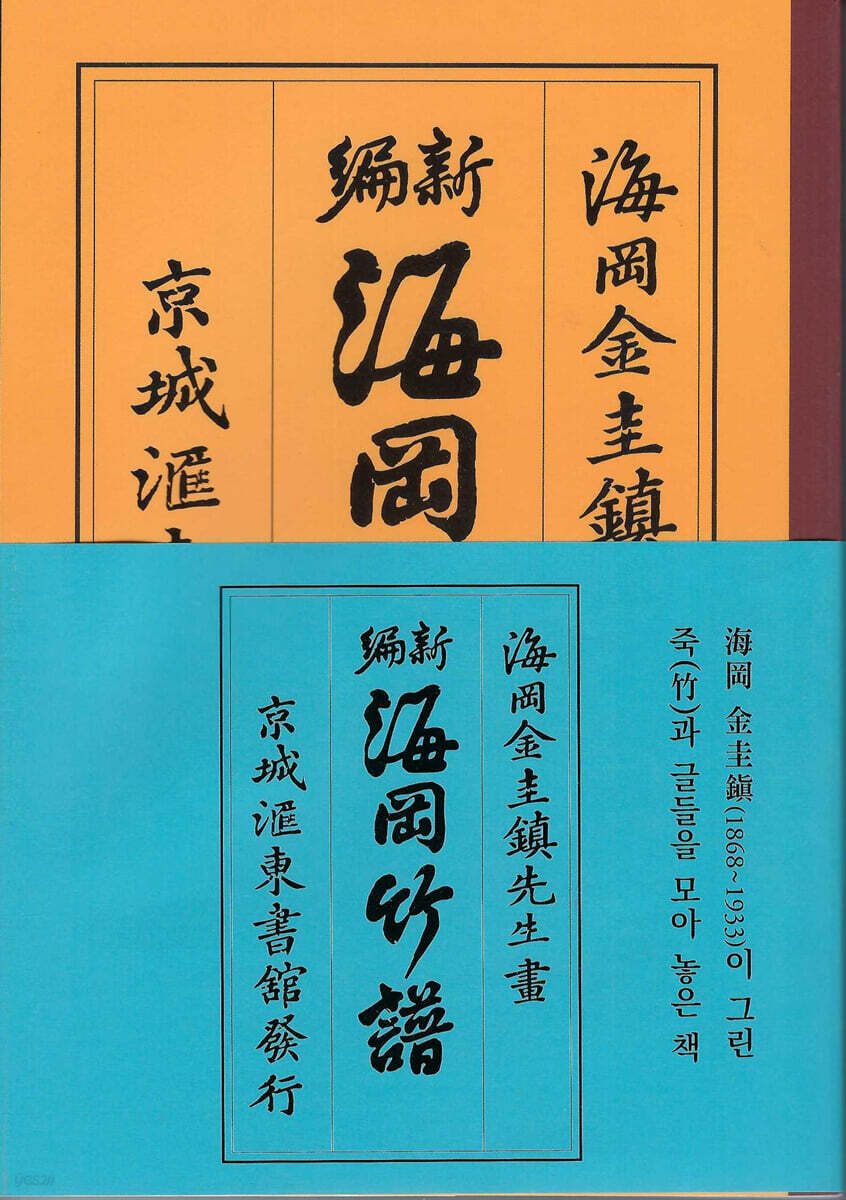 海岡金圭鎮
新編
海岡
京城滙
海岡 金圭鎭(1868~1933)이 그린
죽(竹)과 글들을 모아 놓은 책
海岡金圭鎮先生畫
新編
海岡竹譜
京城滙東書舘發行
YES24